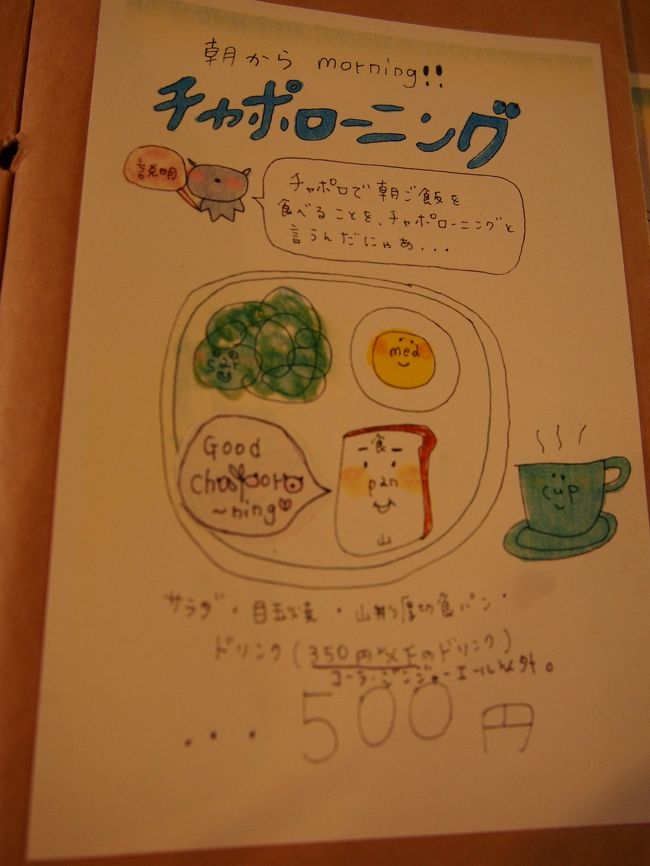 朝から morning!!
チャポローニング
説明
チャポロで朝ご飯を
食べることを、チャポローニングと
言うんだにゃあ...
med
Good
chaporo
~ning
食
pan
山
cup
サラダ・目玉焼・山形厚切食パン・
ドリンク(350円以下のドリンク)
コーラ・ジンジャーエール以外。
...500円